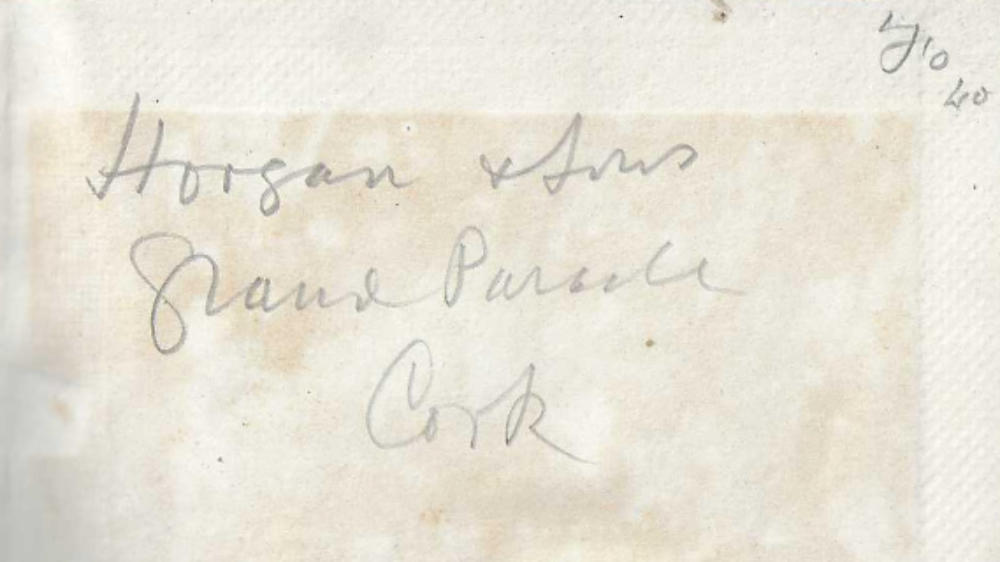 Horgan & Sons
Grand Parade
Cork